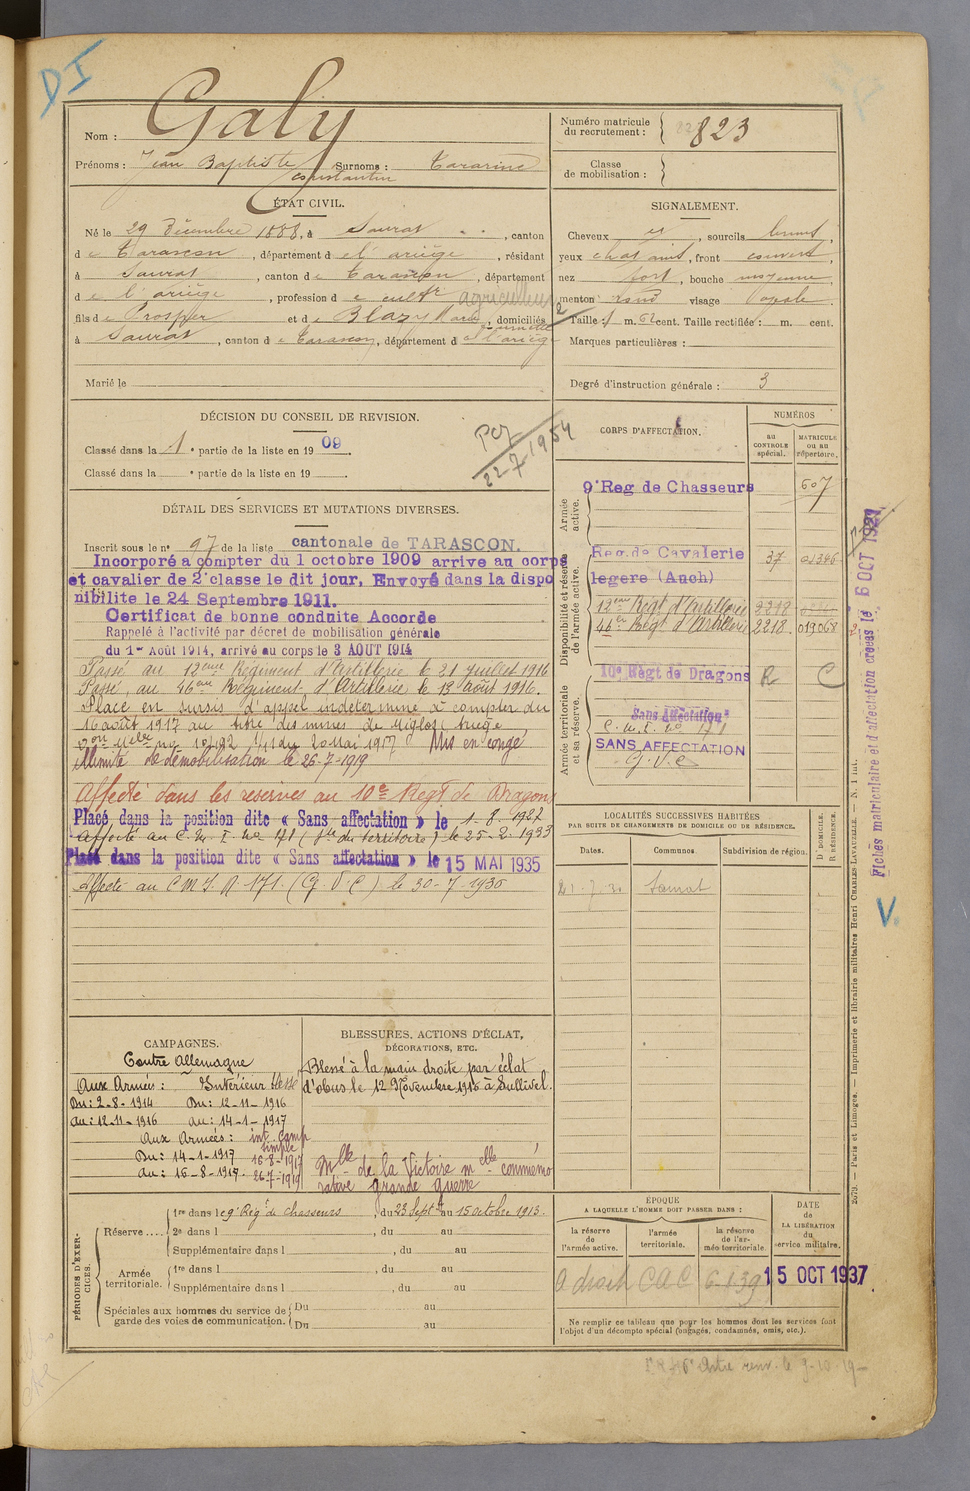 DI
Nom : Galy
Prénoms : Jean Baptiste Surnoms : Cararine
Constantin
Numéro matricule
du recrutement : 823
Classe
de mobilisation :
ÉTAT CIVIL.
Né le 29 Décembre 1888, à Saurat, canton
de Tarascon, département de l'ariège, résidant
à Saurat, canton de Tarascon, département
de l'ariège, profession de cultr agriculteur
fils de Prosper et de Blazy Marie, domiciliés
à Saurat, canton de Tarascon, département de l'ariège
Marié le
SIGNALEMENT.
Cheveux et, sourcils bruns,
yeux chat. , front couvert,
nez fort, bouche moyenne
menton rond visage ovale.
Taille : 1 m. 62 cent. Taille rectifiée : m. cent.
Marques particulières :
Degré d'instruction générale : 3
DÉCISION DU CONSEIL DE REVISION.
Classé dans la 1e partie de la liste en 1909.
Classé dans la e partie de la liste en 19 .
22-7-1954
DÉTAIL DES SERVICES ET MUTATIONS DIVERSES.
Inscrit sous le n° 97 de la liste cantonale de TARASCON.
Incorporé a compter du 1 octobre 1909 arrive au corps
et cavalier de 2e classe le dit jour. Envoyé dans la dispo
nibilite le 24 Septembre 1911.
Certificat de bonne conduite Accorde
Rappelé à l'activité par décret de mobilisation générale
du 1er Août 1914, arrivé au corps le 3 AOUT 1914
Passé au 12eme Régiment d'Artillerie le 21 juillet 1916
Passé au 46eme Régiment d'Artillerie le 13 août 1916.
Placé en sursis d'appel indeterminé à compter du
16 août 1917 au titre des mines de Miglos Ariège
Don Mele No 10192 1/11 du 20 Mai 1917 Mis en congé
illimité de démobilisation le 26-7-1919
Affecté dans les reserves au 10e Regt de Dragons
Placé dans la position dite « Sans affectation » le 1-8-1927
affecté au C. M. I. No 171 (Sve du territoire) le 25-2-1933
Placé dans la position dite « Sans affectation » le 15 MAI 1935
Affecté au C M I N 171. (G V C) le 30-7-1936
CORPS D'AFFECTATION.
NUMÉROS
au
CONTROLE
spécial.
MATRICULE
ou au
répertoire.
Armée
active.
9e Reg de Chasseurs 607
Disponibilité et réserve
de l'armée active.
Reg. de Cavalerie 37 01346
legere (Auch)
12eme Régt d'Artillerie 2218
46e Régt d'Artillerie 2218. 013068
Armée territoriale
et sa réserve.
10e Régt de Dragons R C
Sans Affectation
C. M. I. No 171
SANS AFFECTATION
G. V. C
LOCALITÉS SUCCESSIVES HABITÉES
PAR SUITE DE CHANGEMENTS DE DOMICILE OU DE RÉSIDENCE.
Dates. Communes. Subdivision de région. D DOMICILE.
R RÉSIDENCE.
21-7-30 Saurat
CAMPAGNES.
Contre Allemagne
Aux Armées : Intérieur blessé
Du : 2-8-1914 Du : 12-11-1916
au : 12-11-1916 au : 14-1-1917
Aux Armées : int. camp
simple
Du : 14-1-1917 16-8-1917
Au : 16-8-1917. 26-7-1919
BLESSURES, ACTIONS D'ÉCLAT,
DÉCORATIONS, ETC.
Blessé à la main droite par éclat
d'obus le 12 Novembre 1916 à Saillisel.
Mlle de la Victoire melle commémo
rative grande guerre
PÉRIODES D'EXER-
CICES.
Réserve ....
1re dans le 9e Rég de chasseurs, du 23 Sept au 15 octobre 1913.
2e dans l , du au
Supplémentaire dans l , du au
Armée
territoriale.
1re dans l , du au
Supplémentaire dans l , du au
Spéciales aux hommes du service de
garde des voies de communication.
Du au
Du au
ÉPOQUE
A LAQUELLE L'HOMME DOIT PASSER DANS :
la réserve
de
l'armée active.
l'armée
territoriale.
la réserve
de l'ar-
mée territoriale.
DATE
de
LA LIBÉRATION
du
service militaire.
A droit CAC 15 OCT 1937
Ne remplir ce tableau que pour les hommes dont les services font
l'objet d'un décompte spécial (engagés, condamnés, omis, etc.).
2579. — Paris et Limoges. — Imprimerie et librairie militaires Henri CHARLES LAVAUZELLE. — N. 1 int.
Fiches matriculaire et d'affectation créées le 6 OCT 1921
V.